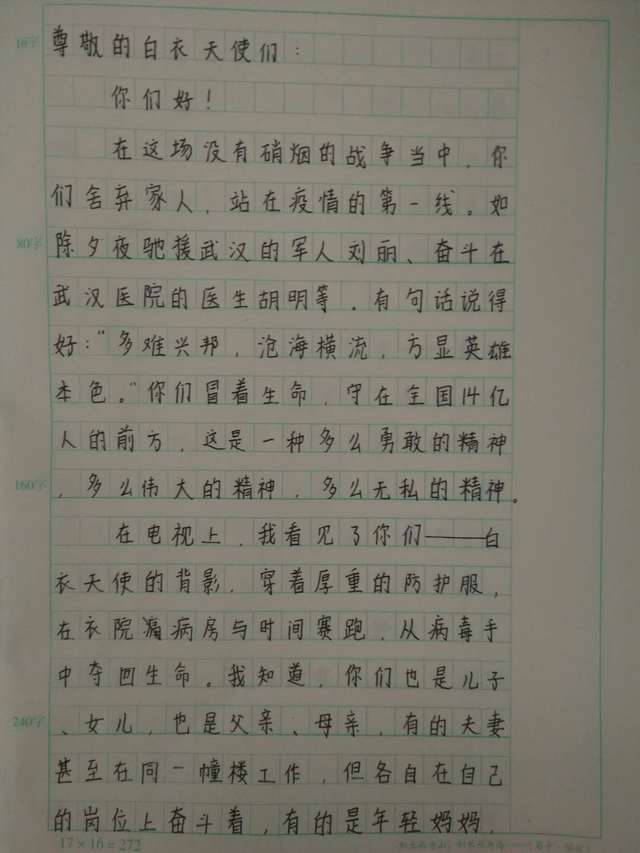 尊敬的白衣天使们：
你们好！
在这场没有硝烟的战争当中，你
们舍弃家人，站在疫情的第一线。如
除夕夜驰援武汉的军人刘丽、奋斗在
武汉医院的医生胡明等。有句话说得
好：“多难兴邦，沧海横流，方显英雄
本色。”你们冒着生命，守在全国14亿
人的前方，这是一种多么勇敢的精神
，多么伟大的精神，多么无私的精神。
在电视上，我看见了你们——白
衣天使的背影，穿着厚重的防护服，
在衣院病房与时间赛跑，从病毒手
中夺回生命。我知道，你们也是儿子
、女儿，也是父亲、母亲，有的夫妻
甚至在同一幢楼工作，但各自在自己
的岗位上奋斗着，有的是年轻妈妈，
16字
80字
160字
240字
17×16=272